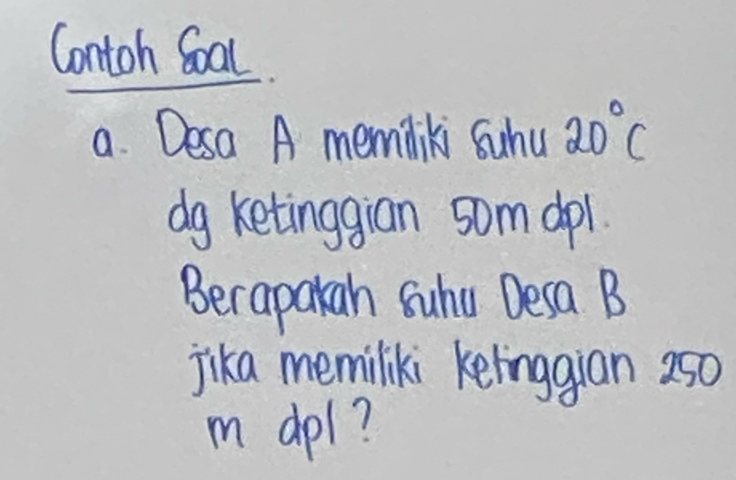 Contoh Soal.
a. Desa A memiliki suhu 20°C
dg ketinggian 50m dpl.
Berapakah suhu Desa B
jika memiliki ketinggian 250
m dpl?